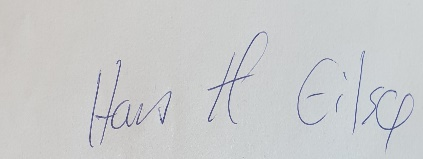 Hans H Eilse